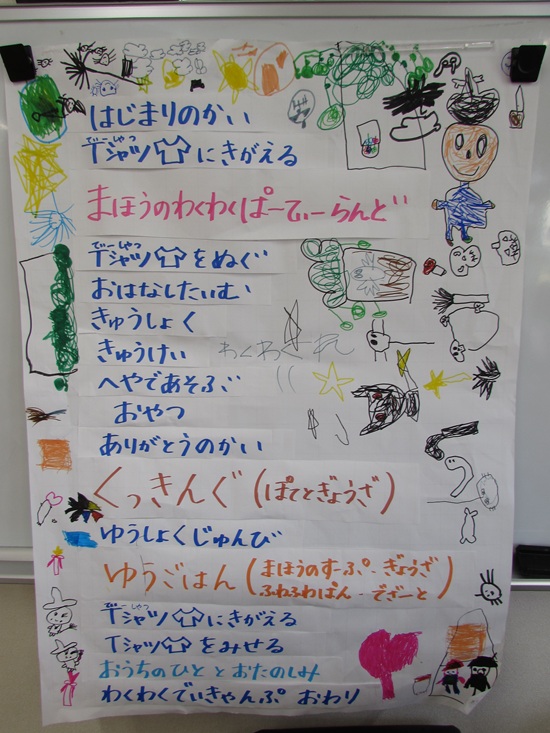 はじまりのかい
Tシャツにきがえる
でぃーしゃつ
まほうのわくわくぱーてぃーらんど
でぃーしゃつ
Tシャツをぬぐ
おはなしたいむ
きゅうしょく
きゅうけい
わくわく
へやであそぶ
おやつ
ありがとうのかい
くっきんぐ(ぽてとぎょうざ)
ゆうしょくじゅんび
ゆうごはん(まほうのすーぷ・ぎょうざ
ふわふわぱん・でざーと)
でぃーしゃつ
Tシャツにきがえる
Tシャツをみせる
おうちのひととおたのしみ
わくわくでいきゃんぷ おわり